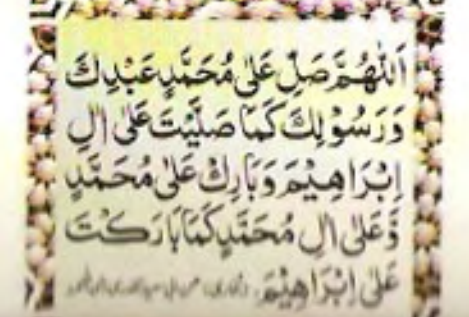 اَللّٰهُمَّ صَلِّ عَلٰى مُحَمَّدٍ عَبْدِكَ
وَرَسُوْلِكَ كَمَا صَلَّيْتَ عَلٰى اٰلِ
اِبْرَاهِيْمَ وَبَارِكْ عَلٰى مُحَمَّدٍ
وَّعَلٰى اٰلِ مُحَمَّدٍ كَمَا بَارَكْتَ
عَلٰى اِبْرَاهِيْمَ